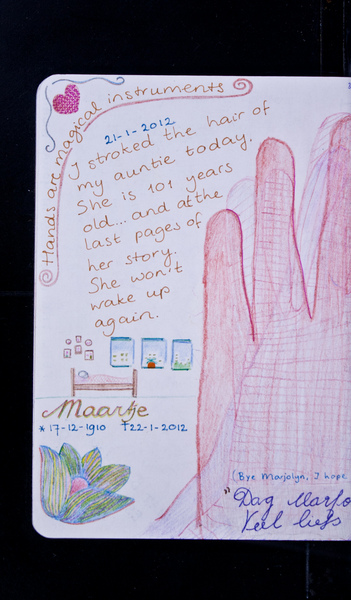 Hands are magical instruments
21-1-2012
I stroked the hair of
my auntie today.
She is 101 years
old... and at the
last pages of
her story.
She won't
wake up
again.
Maartje
* 17-12-1910 †22-1-2012
(Bye Marjolyn, I hope
"Dag Marjo
Veel liefs